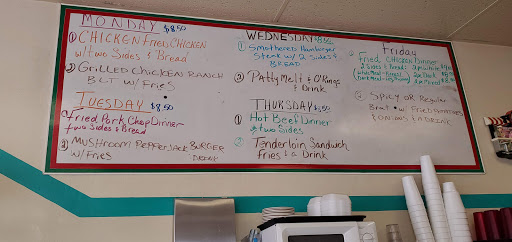 MONDAY $8.50
① CHICKEN FRIED CHICKEN
w/two Sides & Bread
② GRILLED CHICKEN RANCH
BLT w/ FRIES
TUESDAY $8.50
① Fried Pork Chop Dinner
two Sides & Bread
② MUSHROOM PEPPER JACK BURGER
w/Fries
WEDNESDAY $8.50
① Smothered Hamburger
Steak w/ 2 sides &
BREAD
② Patty Melt & O'Rings
& Drink
THURSDAY $8.50
① Hot Beef Dinner
& two Sides
② Tenderloin Sandwich
Fries & a Drink
Friday
Fried Chicken Dinner
2 Sides & Bread
② Spicy or Regular
Brat w/ Fried Potatoes
& ONIONS & A DRINK